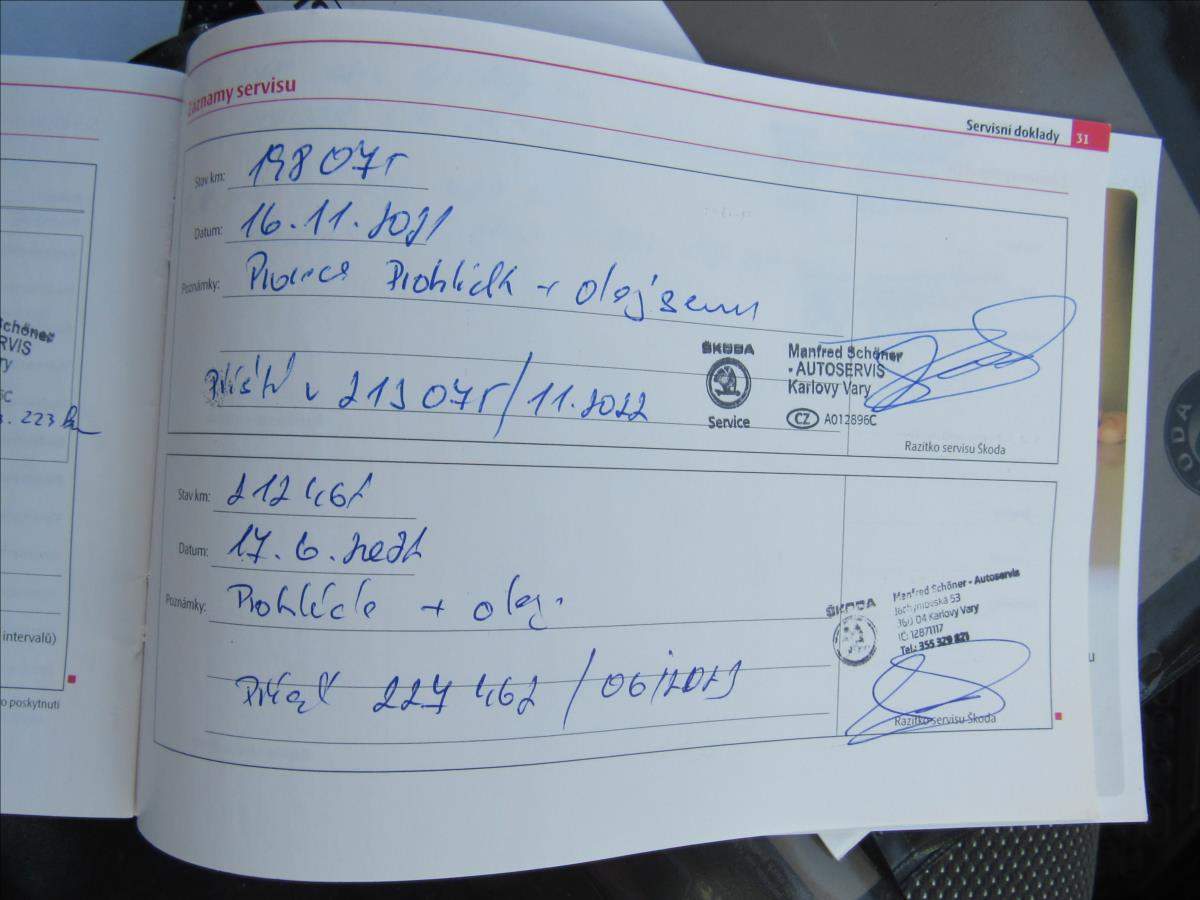 Servisní doklady 31
Záznamy servisu
Stav km: 198 075
Datum: 16.11.2021
Poznámky: Prohlídk + olej
213 075 / 11.2022
ŠKODA
Service
Manfred Schöner
• AUTOSERVIS
Karlovy Vary
CZ A012896C
Razítko servisu Škoda
Stav km: 212 462
Datum: 17.6.
Poznámky: Prohlídk + olej
227 462 / 06/2023
ŠKODA
Manfred Schöner - Autoservis
Jáchymovská 53
360 04 Karlovy Vary
IČ: 12871117
Tel.: 355 329 821
Razítko servisu Škoda
Schöner
RVIS
ry
6C
223
intervalů)
o poskytnutí